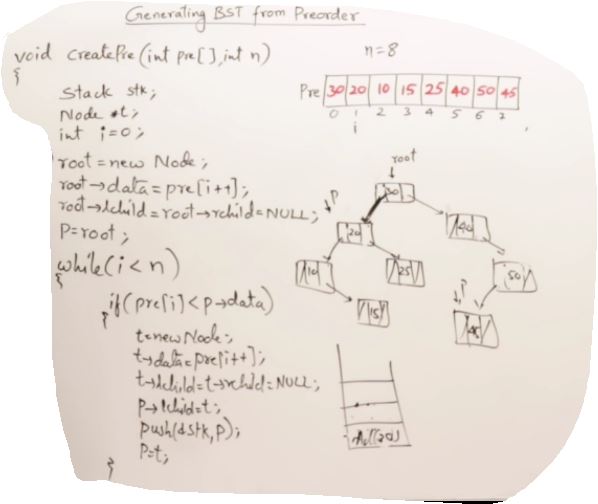 Generating BST from Preorder
void CreatePre(int pre[],int n)
{
Stack stk;
Node *t;
int i=0;
root=new Node;
root→data=pre[i++];
root→lchild=root→rchild=NULL;
P=root;
while(i<n)
{
if(pre[i]<p→data)
{
t=new Node;
t→data=pre[i++];
t→lchild=t→rchild=NULL;
P→lchild=t;
push(&stk,P);
P=t;
}
n=8
Pre 30 20 10 15 25 40 50 45
0 1 2 3 4 5 6 7
i
root
30
P
20
40
10
25
50
P
15
45